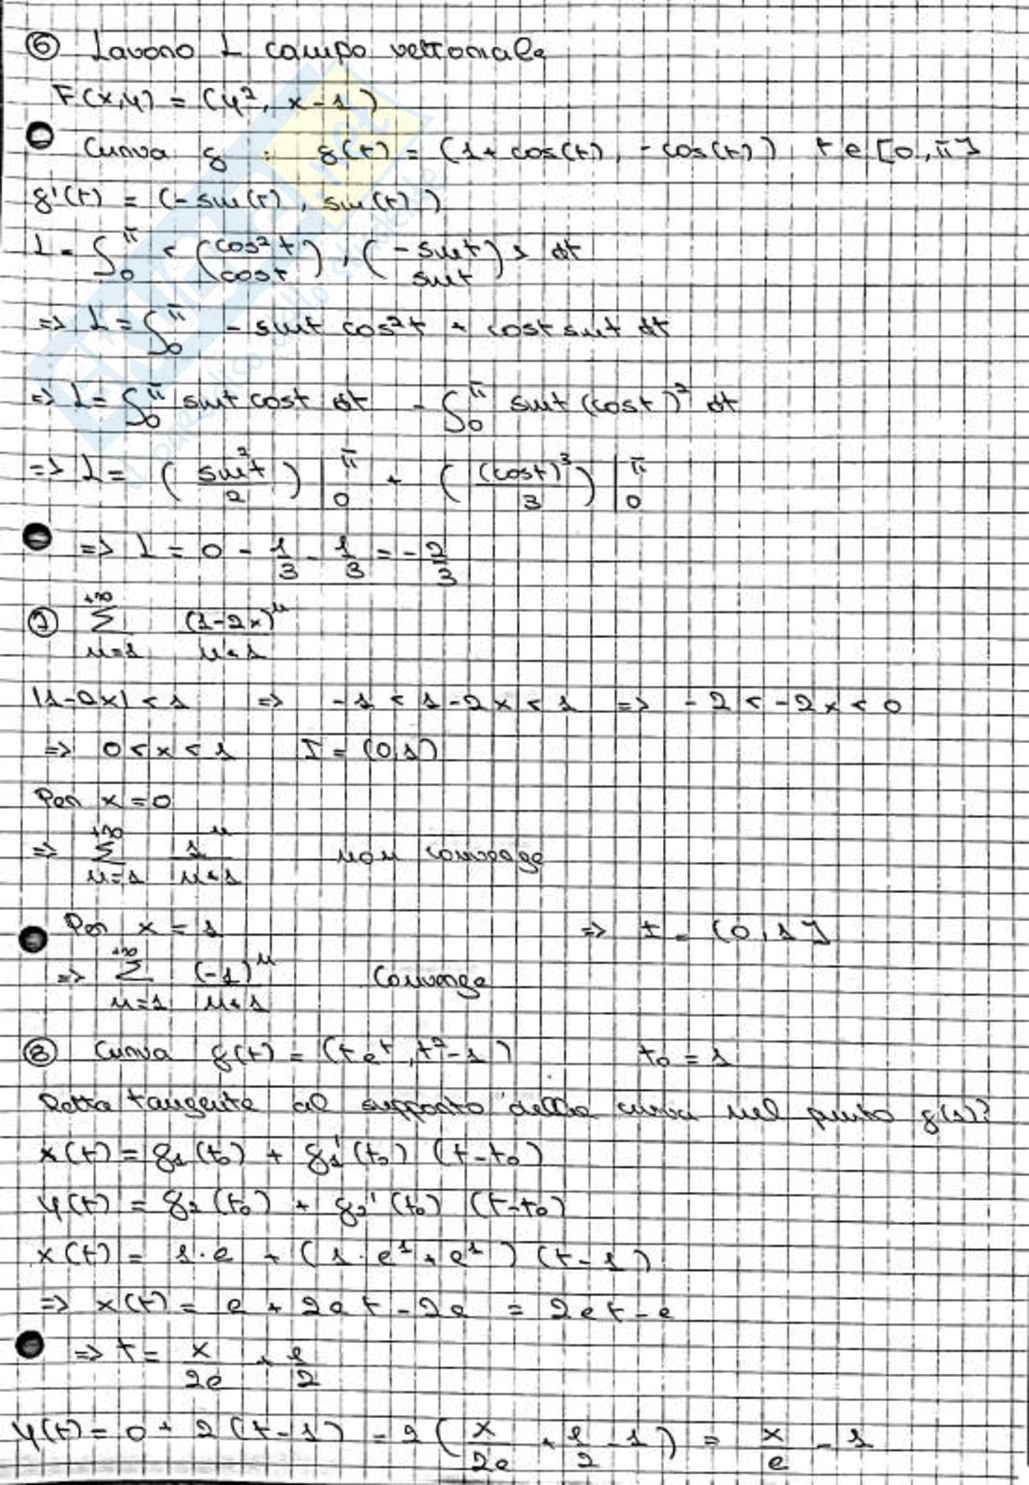 ⑥ Lavoro L campo vettoriale
F(x,y) = (y², x-1)
Curva γ : γ(t) = (1+cos(t), -cos(t)) t∈[0,π]
γ'(t) = (-sin(t), sin(t))
L = ∫₀^π <(cos²t / cost), (-sint / sint)> dt
=> L = ∫₀^π -sint cos²t + cost sint dt
=> L = ∫₀^π sint cost dt - ∫₀^π sint (cost)² dt
=> L = (sin²t/2) |₀^π + ((cost)³/3) |₀^π
=> L = 0 - 1/3 - 1/3 = -2/3
⑦ Σ_{n=1}^{+∞} (1-2x)ⁿ/(n+1)
|1-2x| < 1 => -1 < 1-2x < 1 => -2 < -2x < 0
=> 0 < x < 1 I = (0,1)
Per x = 0
=> Σ_{n=1}^{+∞} 1ⁿ/(n+1) non converge
Per x = 1 => I = (0,1]
=> Σ_{n=1}^{+∞} (-1)ⁿ/(n+1) Converge
⑧ Curva γ(t) = (te^t, t²-1) t₀ = 1
Retta tangente al supporto della curva nel punto γ(1)?
x(t) = γ₁(t₀) + γ₁'(t₀) (t-t₀)
y(t) = γ₂(t₀) + γ₂'(t₀) (t-t₀)
x(t) = 1·e + (1·e¹+e¹) (t-1)
=> x(t) = e + 2et - 2e = 2et - e
=> t = x/2e + 1/2
y(t) = 0 + 2(t-1) = 2(x/2e + 1/2 - 1) = x/e - 1